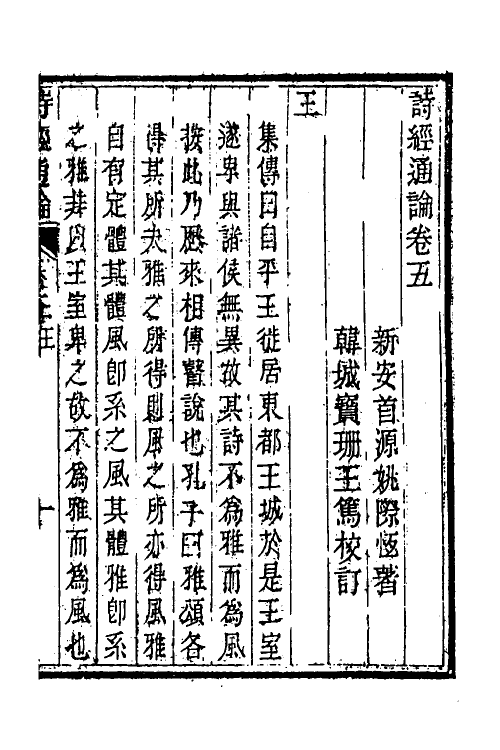 詩經通論卷五
新安首源姚際恆著
韓城寶珊王篤校訂
王
集傳曰自平王徙居東都王城於是王室
遂卑與諸侯無異故其詩不為雅而為風
按此乃歷來相傳瞽說也孔子曰雅頌各
得其所夫雅之所得則風之所亦得風雅
自有定體其體風卽系之風其體雅卽系
之雅非以王室卑之故不為雅而為風也
詩經通論